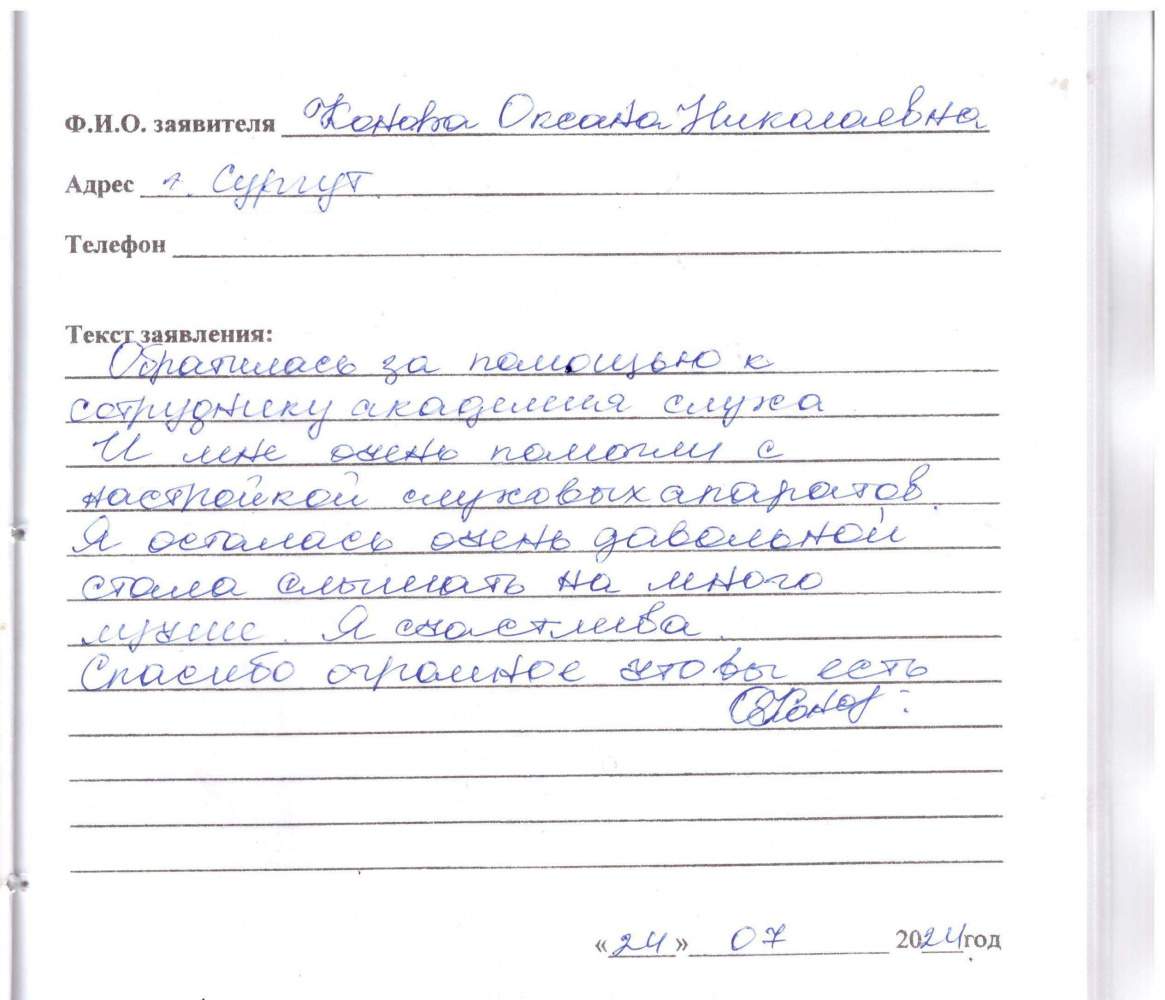 Ф.И.О. заявителя Конова Оксана Николаевна
Адрес г. Сургут
Телефон
Текст заявления:
Обратилась за помощью к
сотруднику академия слуха
И мне очень помогли с
настройкой слуховых апаратов.
Я осталась очень давольной
стала слышать на много
лучше. Я счастлива.
Спасибо огромное что вы есть
«24» 07 2024год